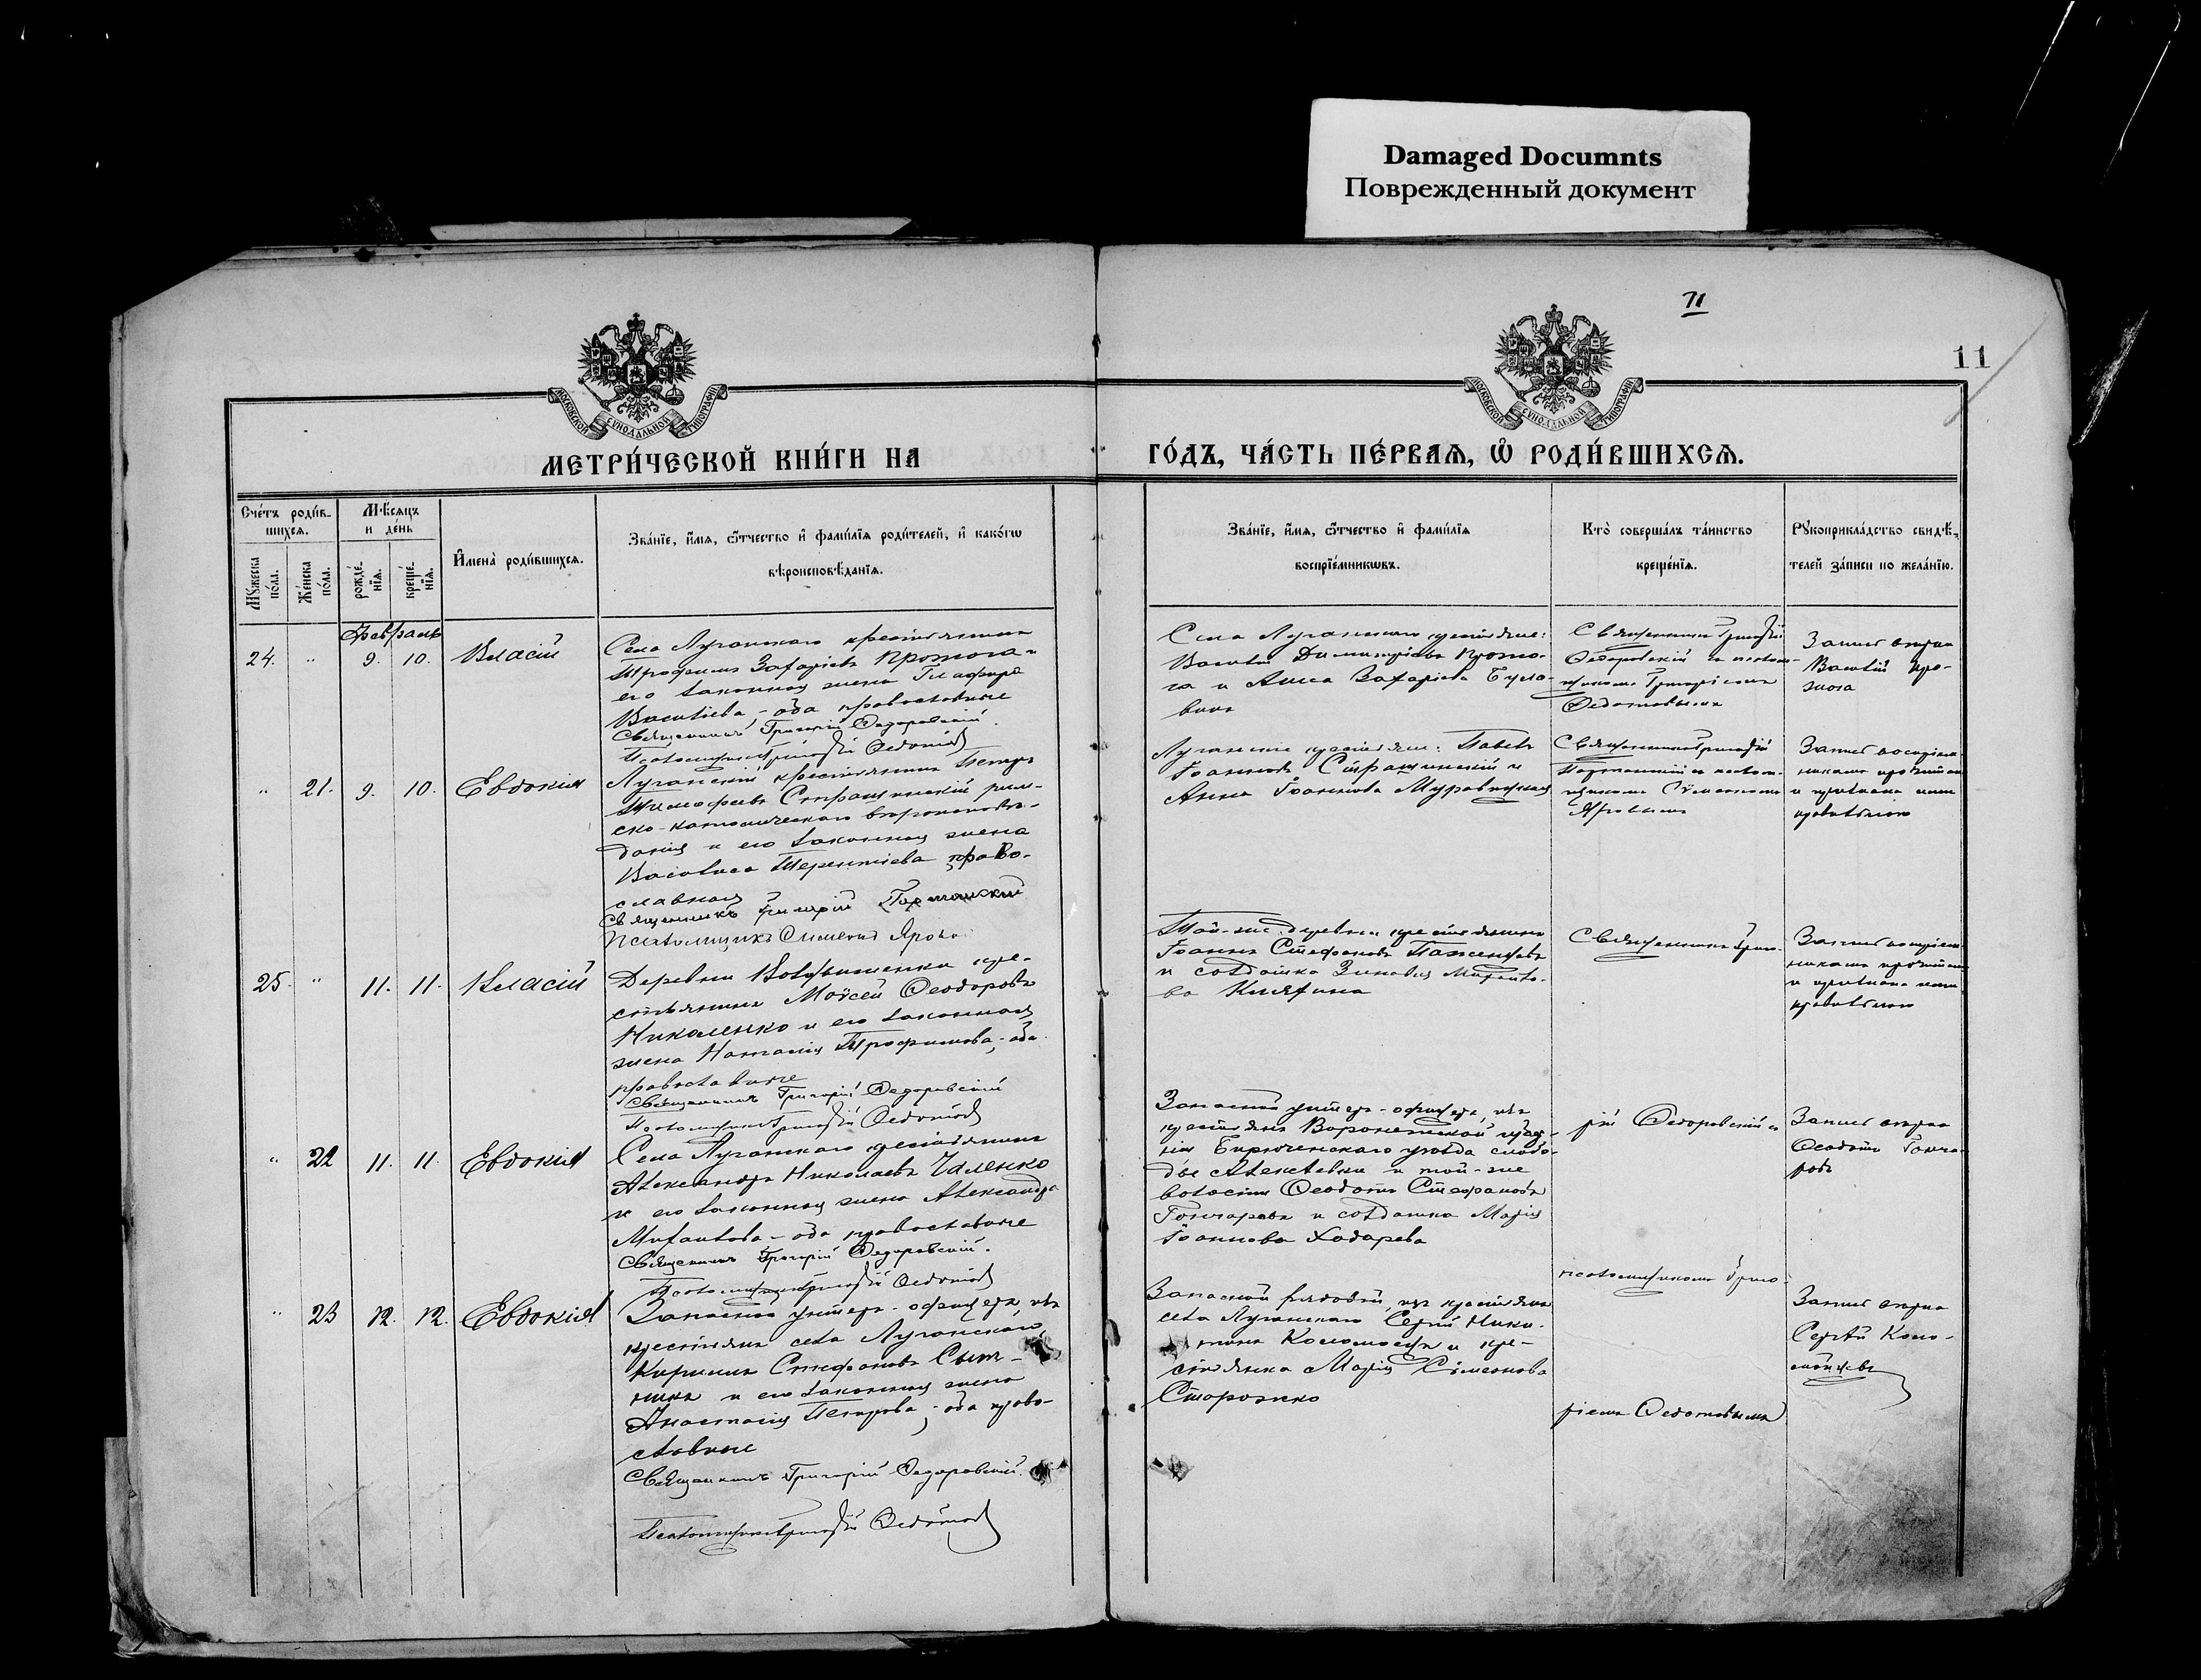 Damaged Documnts
Поврежденный документ
71
11
МОСКОВСКОЙ СУНОДАЛЬНОЙ ТИПОГРАФІИ
МОСКОВСКОЙ СУНОДАЛЬНОЙ ТИПОГРАФІИ
МЕТРИ́ЧЕСКОЙ КНИ́ГИ НА
ГО́ДЪ, ЧА́СТЬ ПЕ́РВАѦ, Ѽ РОДИ́ВШИХСѦ.
Сче́тъ роди́в-
шихсѧ.
Мѣ́сѧцъ
и де́нь
Мꙋ́жеска по́ла.
Же́нска по́ла.
рожде́-нїѧ.
креще́-нїѧ.
И҆мена̀ роди́вшихсѧ.
Зва́нїе, и҆́мѧ, ѻ҆́тчество и҆ фами́лїѧ роди́телей, и҆ како́гѡ
вѣроисповѣ́данїѧ.
Зва́нїе, и҆́мѧ, ѻ҆́тчество и҆ фами́лїѧ
воспрїе́мникѡвъ.
Кто̀ соверша́лъ та́инство
креще́нїѧ.
Рꙋкоприкла́дство свидѣ́-
телей за́писи по жела́нїю.
Февраль
24. " 9. 10. Власій
Села Луганскаго крестьянинъ
Трофимъ Захаріевъ Протога и
его законная жена Гликфира
Василіева, - оба православные
Священникъ Григорій Федоровскій.
Псаломщикъ Григорій Федотовъ
Села Луганскаго крестьяне:
Василій Димитріевъ Прото-
га и Анна Захаріева Була-
вина
Священникъ Григорій
Федоровскій съ псалом-
щикомъ Григоріемъ
Федотовымъ
Василій Про-
" 21. 9. 10. Евдокія
Луганскій крестьянинъ Петръ
Тимофеевъ Стращинскій рим-
ско-католическаго вѣроисповѣ-
данія и его законная жена
Василиса Терентіева право-
славная
Священникъ Григорій
Псаломщикъ Симеонъ Яровъ
Луганскіе крестьяне: Павелъ
Іоанновъ Стращинскій и
Анна Іоаннова
Священникъ Григорій
и псалом-
щикомъ Сѵмеономъ
Яровымъ
25. " 11. 11. Власій
Деревни кре-
стьянинъ Моѵсей Феодоровъ
Николенко и его законная
жена Наталія Трофимова, - оба
православные
Священникъ Григорій Федоровскій
Псаломщикъ Григорій Федотовъ
Той-же деревни крестьянинъ
Іоаннъ Стефановъ
и солдатка Зиновія Михаило-
ва Княгина
Священникъ Григо-
" 22 11. 11. Евдокія
Села Луганскаго крестьянинъ
Александръ Николаевъ Чаленко
и его законная жена Александра
Михаилова - оба православные
Священникъ Григорій Федоровскій.
Псаломщикъ Григорій Федотовъ
Запасной унтеръ-офицеръ, изъ
крестьянъ Воронежской губер-
ніи Бирюченскаго уѣзда слобо-
ды Алексѣевки и той-же
волости Феодотъ Стефановъ
Гончаровъ и солдатка Марія
Іоаннова Ходарева
рій Федоровскій съ
Феодотъ Гонча-
ровъ
" 23 12. 12. Евдокія
Запасной унтеръ-офицеръ, изъ
крестьянъ села Луганскаго,
Кириллъ Стефановъ Сыт-
никъ и его законная жена
Анастасія Петрова; - оба право-
славные
Священникъ Григорій Федоровскій.
Псаломщикъ Григорій Федотовъ
Запасной рядовой, изъ крестьянъ
села Луганскаго Сергій Ники-
тинъ Коломоецъ и кре-
стьянка Марія Сѵмеонова
Сторожко
псаломщикомъ Григо-
ріемъ Федотовымъ
Сергѣй Коло-